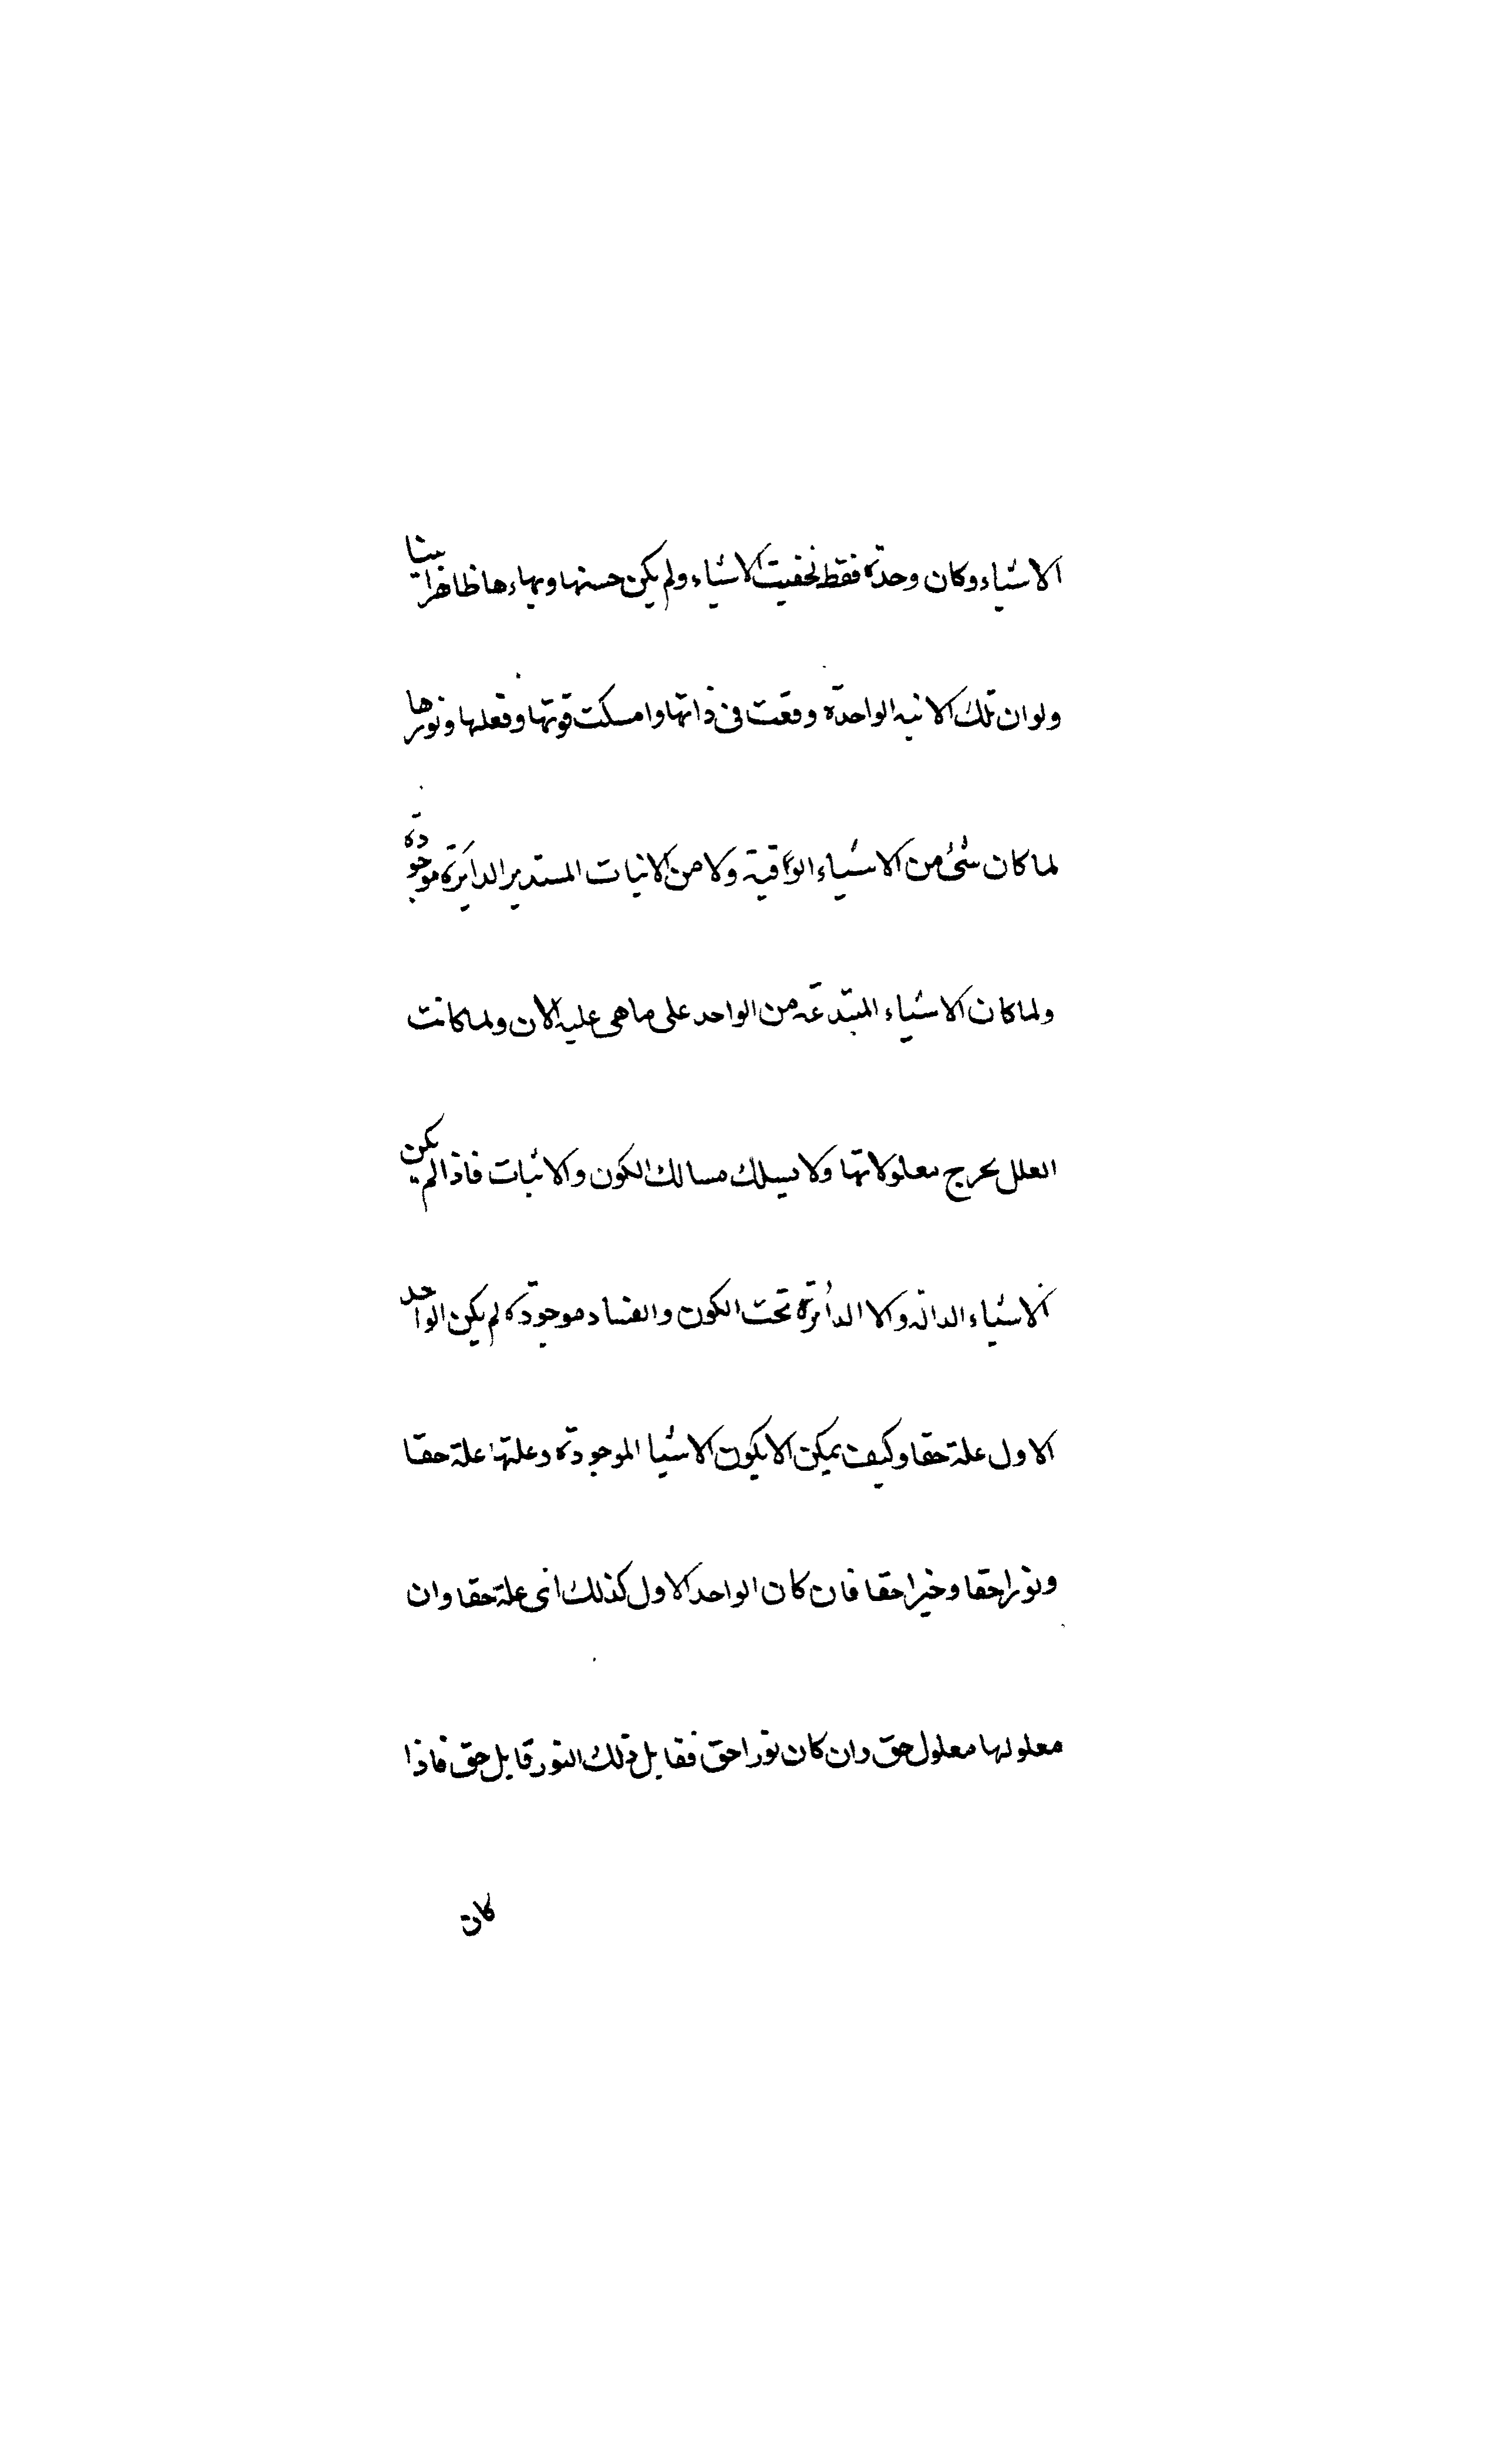 الاشياء وكان وحدة فقط لخفيت الاشياء ولم يكن حسنها وبهاءها ظاهرا بينا
ولو ان تلك الانيه الواحدة وقفت فى ذاتها وامسكت قوتها وفعلها ونورها
لما كان شئ من الاشياء الواقية ولا من الانيات المستدير الدايرة موجودة
ولما كان الاشياء المبتدعة من الواحد على ما هى عليه الان ولما كانت
العلل يخرج معلولاتها ولا يسلك مسالك الكون والاثبات فاذا لم يكن
الاشياء الداثه ولا الدائرة تحت الكون والفساد موجودة لم يكن الواحد
الاول علة حقا وكيف يمكن الا يكون الاشيا الموجودة وعلتها علة حقا
ونورا حقا وخيرا حقا فان كان الواحد الاول كذلك اى علة حقا وان
معلولها معلول حق وان كان نورا حق فقابل ذلك النور قابل حق فاذا
كان